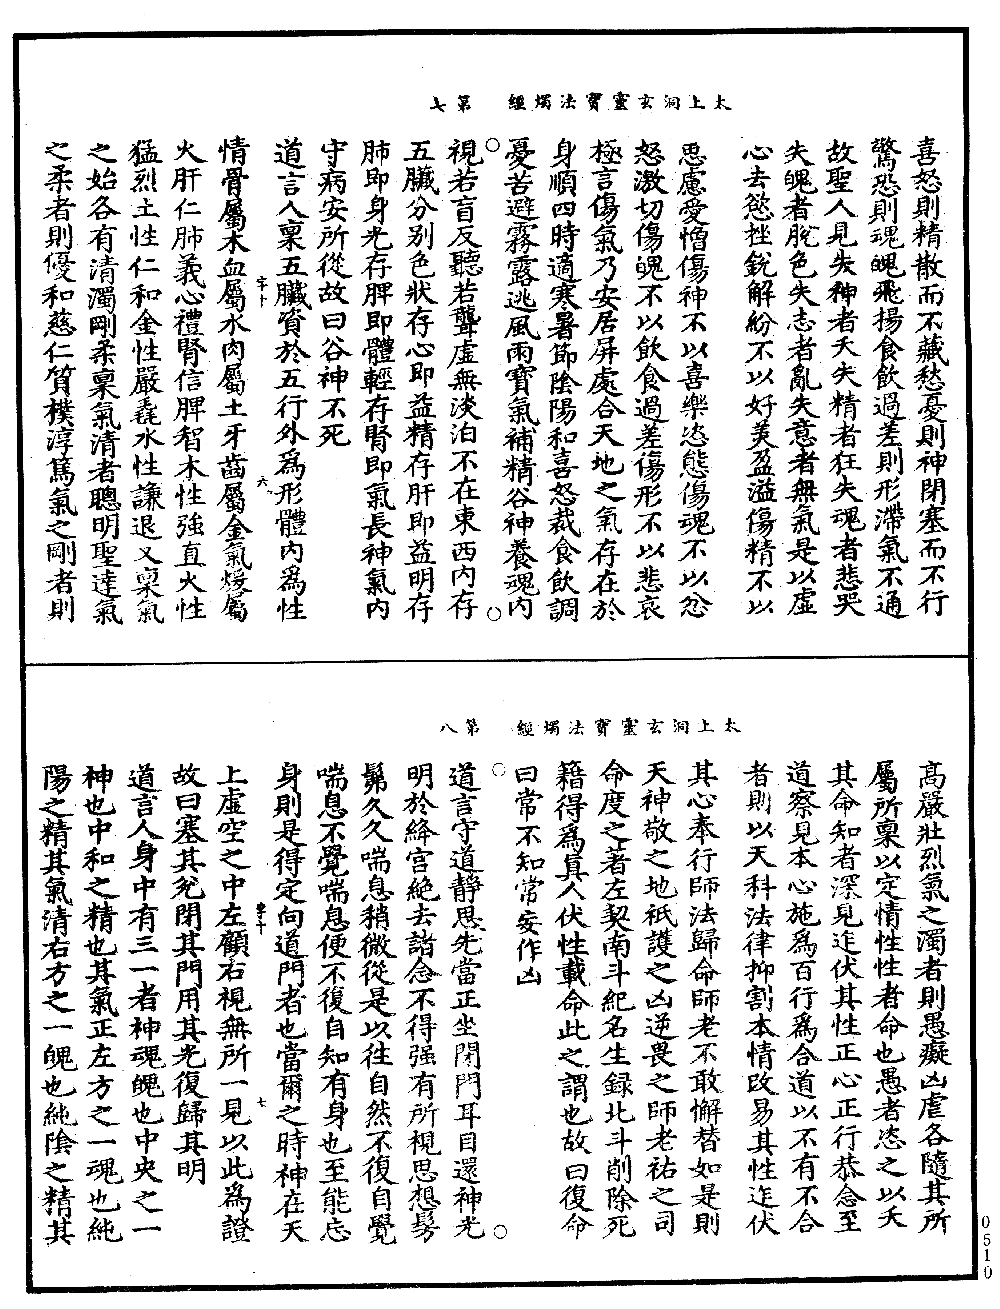 太上洞玄靈寶法燭經　第七
喜怒則精散而不藏愁憂則神閉塞而不行
驚恐則魂魄飛揚食飲過差則形滯氣不通
故聖人見失神者夭失精者狂失魂者悲哭
失魄者脫色失志者亂失意者無氣是以虛
心去慾挫銳解紛不以好美盈溢傷精不以
思慮愛憎傷神不以喜樂恣態傷魂不以忿
怒激切傷魄不以飲食過差傷形不以悲哀
極言傷氣乃安居屏處合天地之氣存在於
身順四時適寒暑節陰陽和喜怒裁食飲調
憂苦避霧露逃風雨寶氣補精谷神養魂內
視若盲反聽若聾虛無淡泊不在東西內存
五臟分別色狀存心即益精存肝即益明存
肺即身光存脾即體輕存腎即氣長神氣內
守病安所從故曰谷神不死
道言人稟五臟資於五行外為形體內為性
字十　六
情骨屬木血屬水肉屬土牙齒屬金氣煖屬
火肝仁肺義心禮腎信脾智木性強直火性
猛烈土性仁和金性嚴毳水性謙退又稟氣
之始各有清濁剛柔稟氣清者聰明聖達氣
之柔者則優和慈仁質樸淳篤氣之剛者則
太上洞玄靈寶法燭經　第八
高嚴壯烈氣之濁者則愚癡凶虐各隨其所
屬所稟以定情性性者命也愚者恣之以夭
其命知者深見迮伏其性正心正行恭念至
道察見本心施為百行為合道以不有不合
者則以天科法律抑割本情改易其性迮伏
其心奉行師法歸命師老不敢懈替如是則
天神敬之地祇護之凶逆畏之師老祐之司
命度之著左契南斗紀名生録北斗削除死
籍得為真人伏性載命此之謂也故曰復命
曰常不知常妄作凶
道言守道靜思先當正坐閉門耳目還神光
明於絳宮絶去諸念不得强有所視思想髣
髴久久喘息稍微從是以往自然不復自覺
喘息不覺喘息便不復自知有身也至能忘
身則是得定向道門者也當爾之時神在天
字十　七
上虛空之中左顧右視無所一見以此為證
故曰塞其兊閉其門用其光復歸其明
道言人身中有三一者神魂魄也中央之一
神也中和之精也其氣正左方之一魂也純
陽之精其氣清右方之一魄也純陰之精其
0510